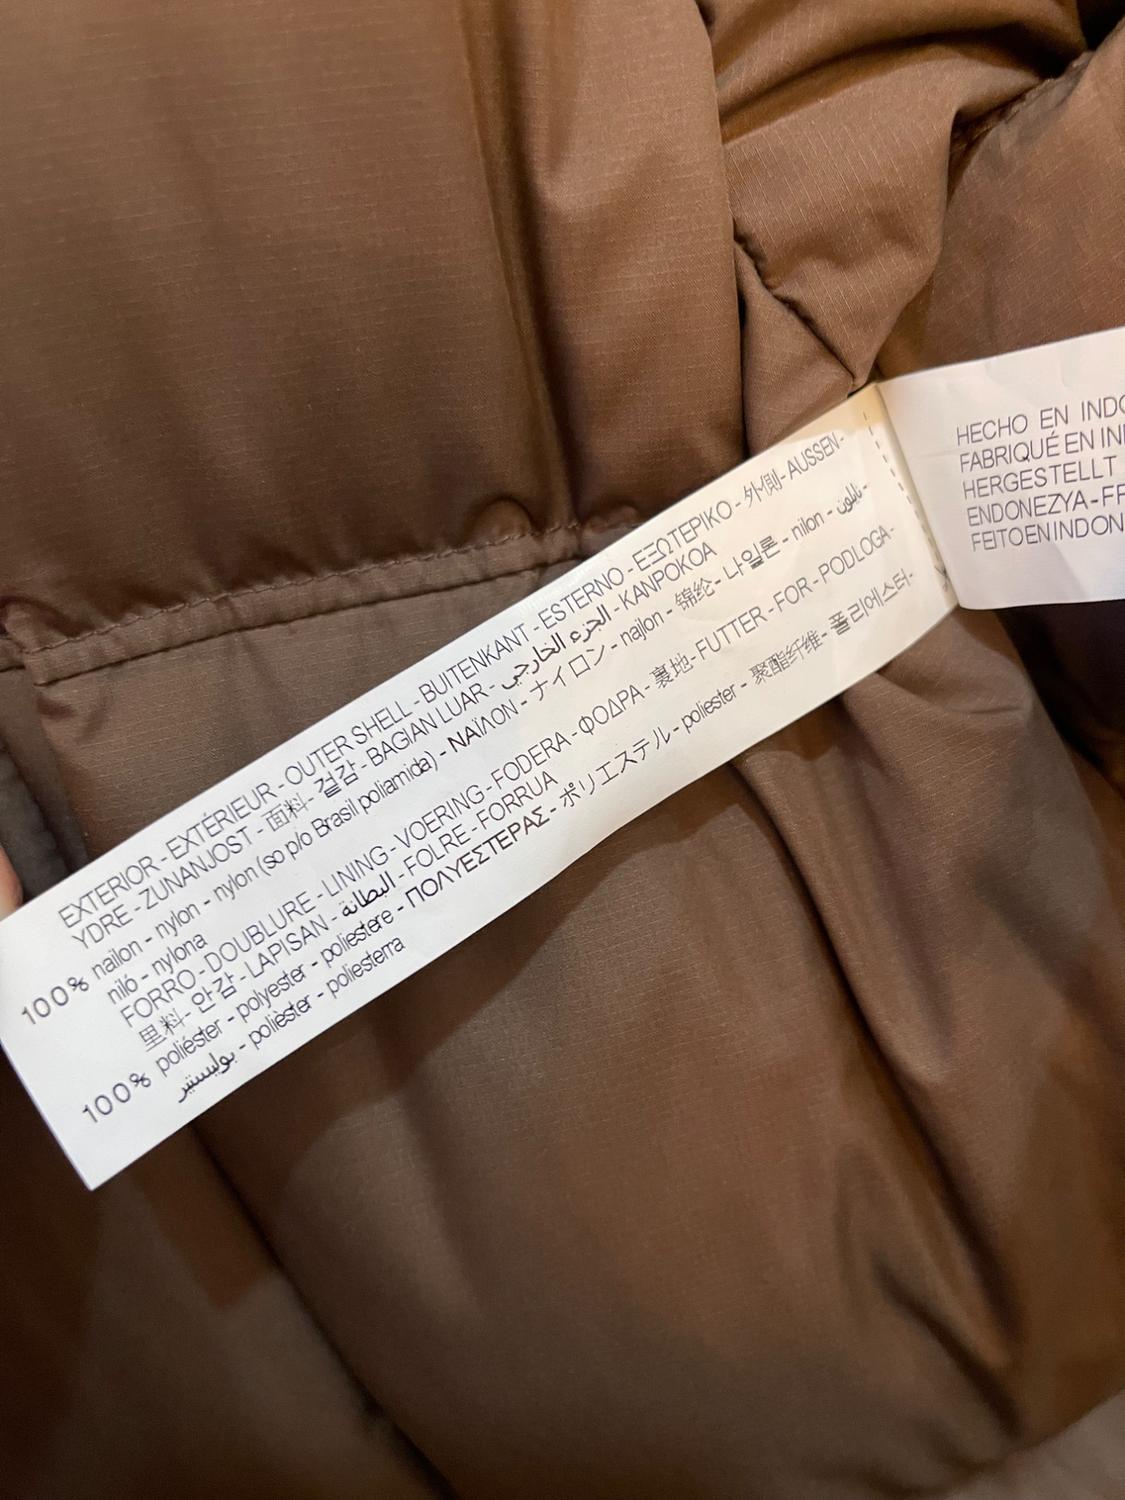 EXTERIOR - EXTÉRIEUR - OUTER SHELL - BUITENKANT - ESTERNO - ΕΞΩΤΕΡΙΚΟ - 外側 - AUSSEN-
YDRE - ZUNANJOST - 面料 - 겉감 - BAGIAN LUAR - الجزء الخارجي - KANPOKOA
100% nailon - nylon - nylon (so p/o Brasil poliamida) - ΝΑΪΛΟΝ - ナイロン - najlon - 锦纶 - 나일론 - nilon - نايلون -
niló - nylona
FORRO - DOUBLURE - LINING - VOERING - FODERA - ΦΟΔΡΑ - 裏地 - FUTTER - FOR - PODLOGA -
里料 - 안감 - LAPISAN - البطانة - FOLRE - FORRUA
100% poliéster - polyester - poliestere - ΠΟΛΥΕΣΤΕΡΑΣ - ポリエステル - poliester - 聚酯纤维 - 폴리에스터 -
بوليستير - polièster - poliesterra
HECHO EN INDO
FABRIQUÉ EN IN
HERGESTELLT
ENDONEZYA - FR
FEITO EN INDON